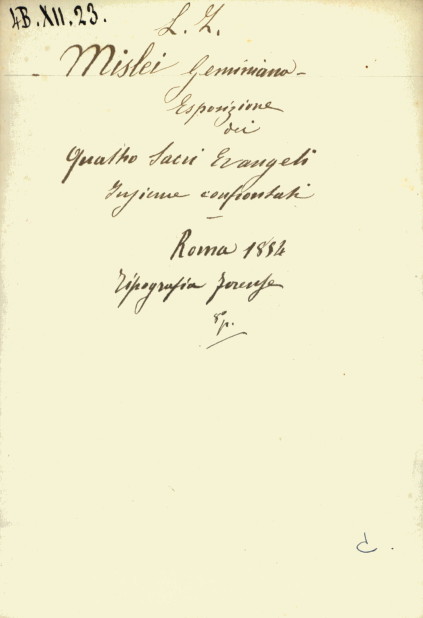 4B.XII.23.
L. Z.
Mislei Geminiano -
Esposizione
dei
Quattro Sacri Evangeli
Insieme confrontati
Roma 1884
Tipografia Forense
8° p.
C.